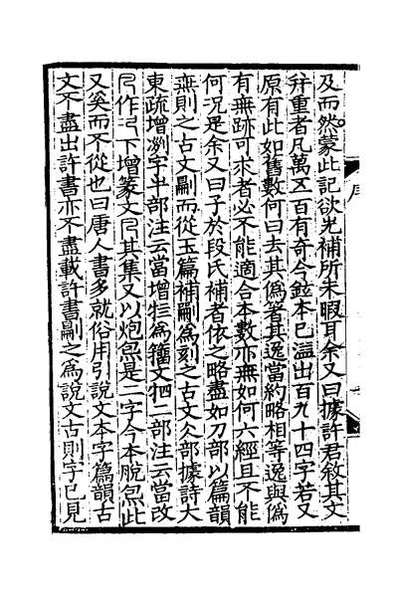 及而然蒙此記欲光補所未暇耳余又曰據許君敘其文
幷重者凡萬五百有奇今鉉本已溢出百九十四字若又
原有此如舊數何曰去其偽箸其逸當約略相等逸與偽
有無跡可求者必不能適合本數亦無如何六經且不能
何況是余又曰子於段氏補者依之略盡如刀部以篇韻
無則之古文劚而從玉篇補劚為刻之古文仌部據詩大
東疏增冽字半部注云當增牲為籀文牭二部注云當改
作下增篆文其集又以炮炰是二字今本脫炰此
又奚而不從也曰唐人書多就俗用引說文本字篇韻古
文不盡出許書亦不盡載許書劚之為說文古則字已見